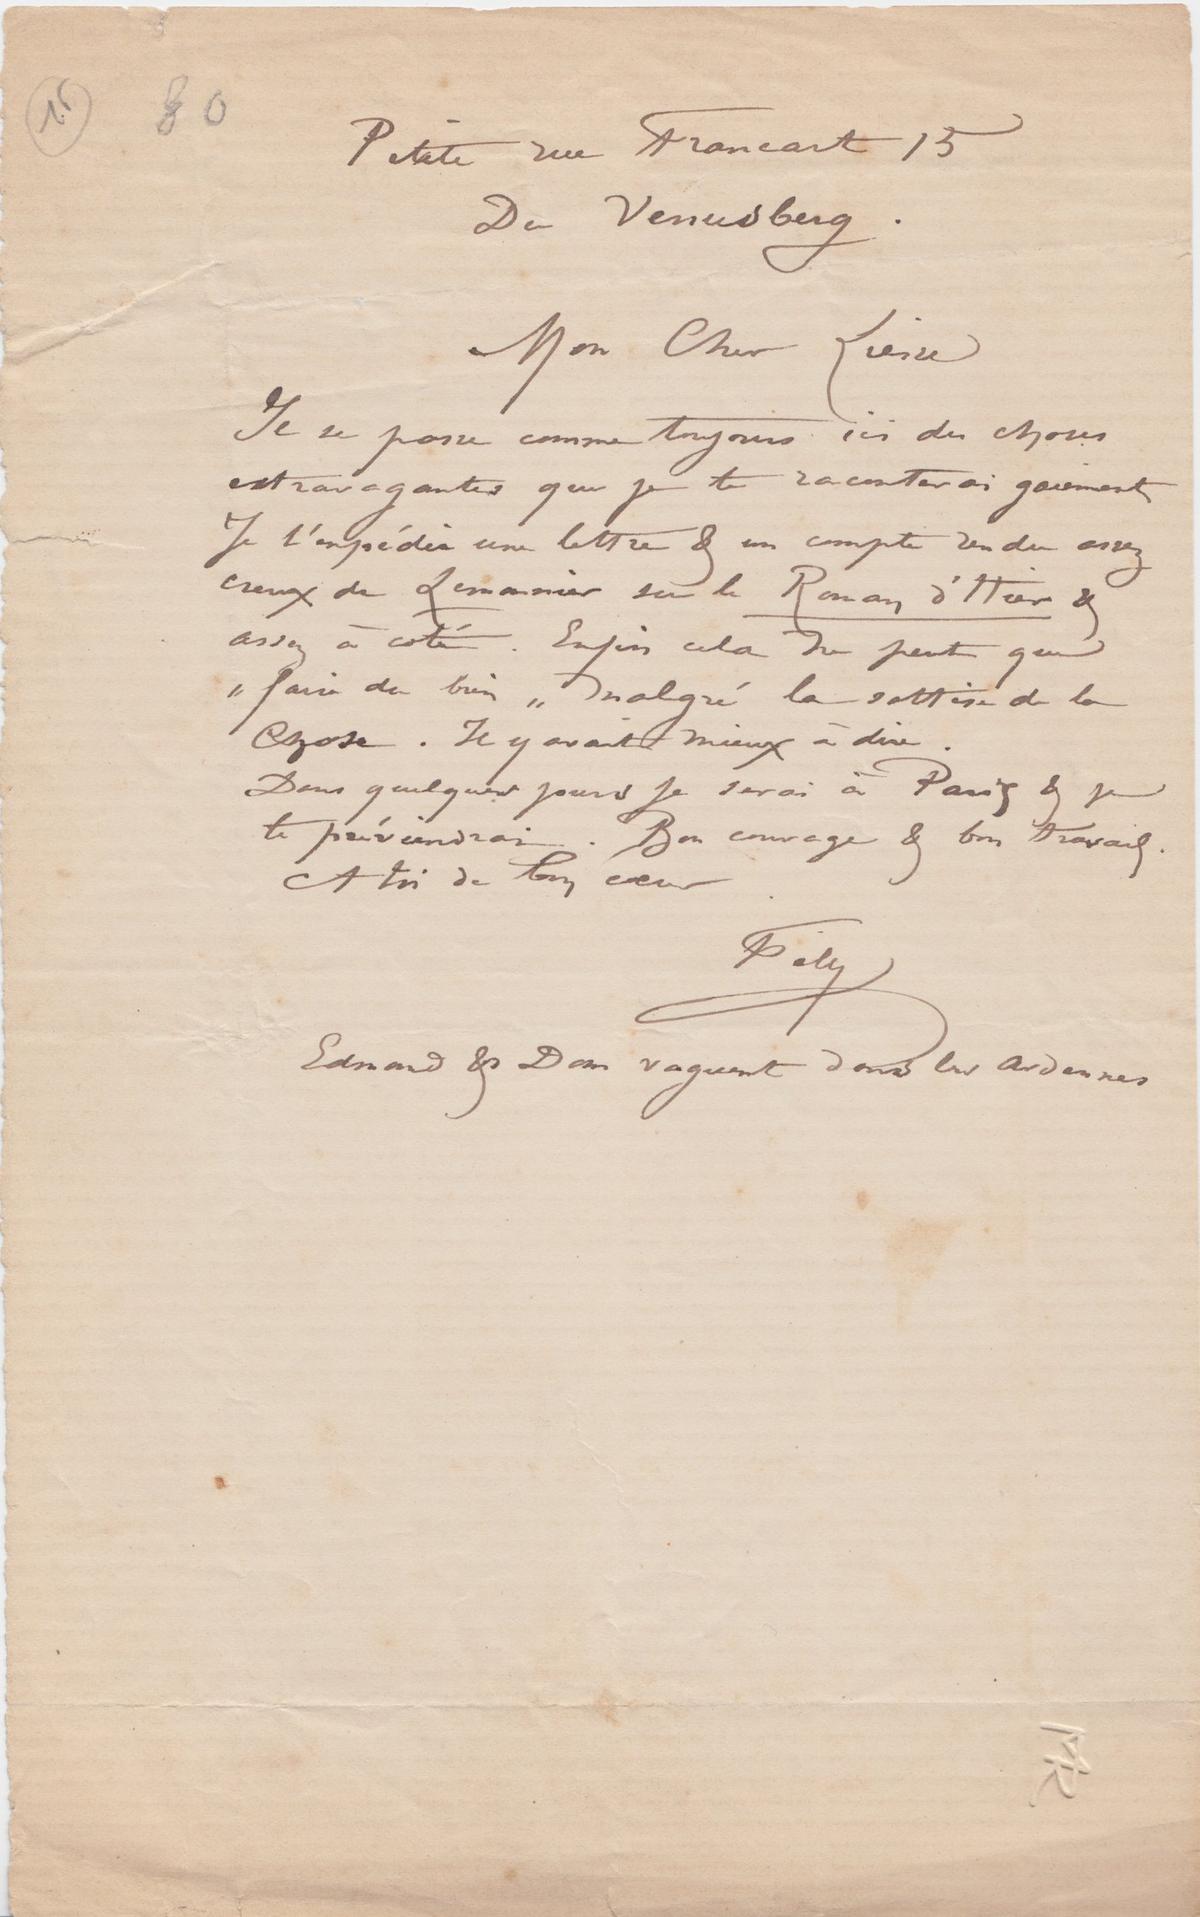 15
80
Petite rue Francart 15
Du Venusberg.
Mon Cher Liesse
Il se passe comme toujours ici des choses
extravagantes que je te raconterai gaiement
Je t'expédie une lettre & un compte rendu assez
creux de Lemonnier sur le Roman d'Hier &
assez à coté. Enfin cela ne peut que
„ faire du bien „ malgré la sottise de la
chose. Il y avait mieux à dire.
Dans quelques jours je serai à Paris & je
te préviendrai. Bon courage & bon travail.
A toi de bon cœur
Fély
Edmond & Dom vaguent dans les Ardennes